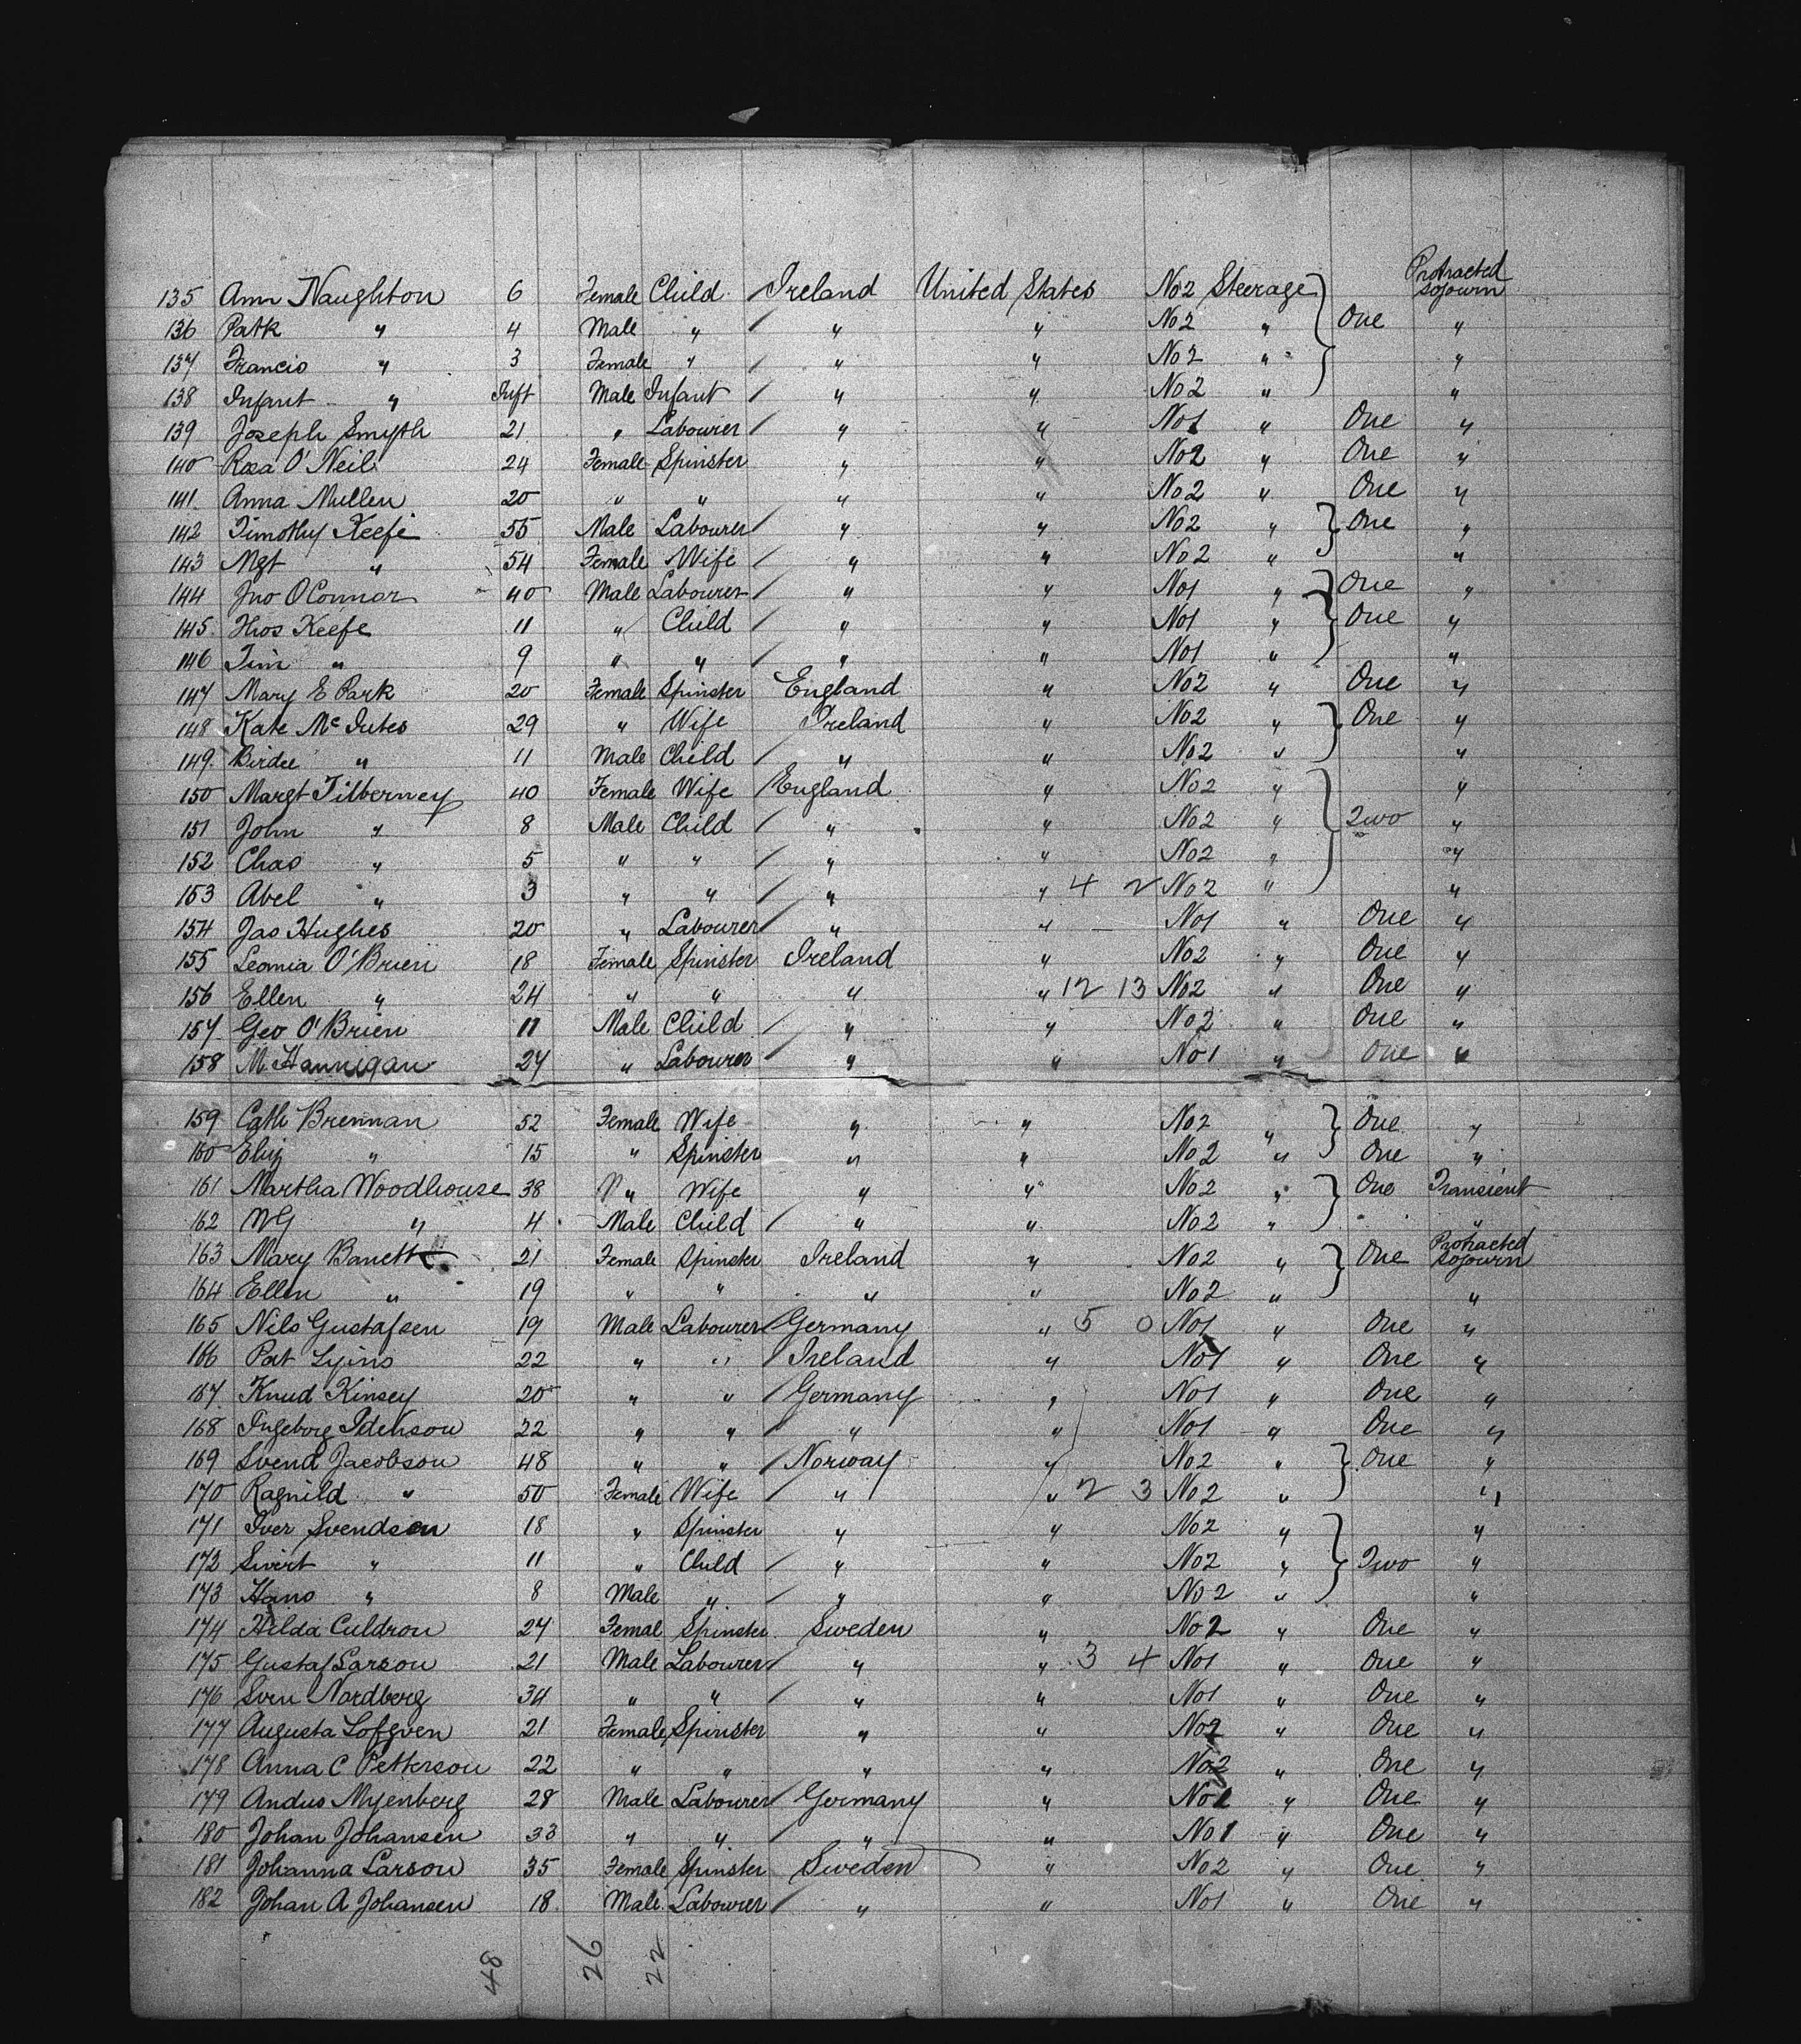 Protracted
135 Ann Naughton 6 Female Child Ireland United States No 2 Steerage sojourn
136 Patk " 4 Male " " " No 2 " One "
137 Francis " 3 Female " " " No 2 " "
138 Infant " Inft Male Infant " " No 2 " "
139 Joseph Smyth 21 " Labourer " " No 1 " One "
140 Rosa O'Neil 24 Female Spinster " " No 2 " One "
141 Anna Mullen 20 " " " " No 2 " One "
142 Timothy Keefe 55 Male Labourer " " No 2 " One "
143 Mgt " 54 Female Wife " " No 2 " "
144 Jno O'Connor 40 Male Labourer " " No 1 " One "
145 Thos Keefe 11 " Child " " No 1 " One "
146 Tim " 9 " " " " No 1 " "
147 Mary E Park 20 Female Spinster England " No 2 " One "
148 Kate 29 " Wife Ireland " No 2 " One "
149 Birdee " 11 Male Child " " No 2 " "
150 Margt Tilberney 40 Female Wife England " No 2 " "
151 John " 8 Male Child " " No 2 " Two "
152 Chas " 5 " " " " No 2 " "
153 Abel " 3 " " " " 4 2 No 2 " "
154 Jas Hughes 20 " Labourer " " No 1 " One "
155 Leomia O'Brien 18 Female Spinster Ireland " No 2 " One "
156 Ellen " 24 " " " " 12 13 No 2 " One "
157 Geo O'Brien 11 Male Child " " No 2 " One "
158 M. Hannigan 24 " Labourer " " No 1 " One "
159 Cath Brennan 52 Female Wife " " No 2 " One "
160 Eliz " 15 " Spinster " " No 2 " One "
161 Martha Woodhouse 38 " Wife " " No 2 " One Transient
162 WG " 4 Male Child " " No 2 " "
163 Mary Barrett 21 Female Spinster Ireland " No 2 " One Protracted sojourn
164 Ellen " 19 " " " " No 2 " "
165 Nils Gustafsen 19 Male Labourer Germany " 5 0 No 1 " One "
166 Pat Lyins 22 " " Ireland " No 1 " One "
167 Knud Kinsey 20 " " Germany " No 1 " One "
168 Ingeborg 22 " " " " No 1 " One "
169 Svend Jacobson 48 " " Norway " No 2 " One "
170 Ragnild " 50 Female Wife " " 2 3 No 2 " "
171 Iver Svendsen 18 " Spinster " " No 2 " "
172 Sivert " 11 " Child " " No 2 " Two "
173 Hans " 8 Male " " " No 2 " "
174 Hilda Culdron 24 Femal Spinster Sweden " No 2 " One "
175 Gustaf Larson 21 Male Labourer " " 3 4 No 1 " One "
176 Sven Nordberg 34 " " " " No 1 " One "
177 Augusta Lofgven 21 Female Spinster " " No 2 " One "
178 Anna C Petterson 22 " " " " No 2 " One "
179 Andus Myenberg 28 Male Labourer Germany " No 1 " One "
180 Johan Johansen 33 " " " " No 1 " One "
181 Johanna Larson 35 Female Spinster Sweden " No 2 " One "
182 Johan A Johansen 18 Male Labourer " " No 1 " One "
48 26 22